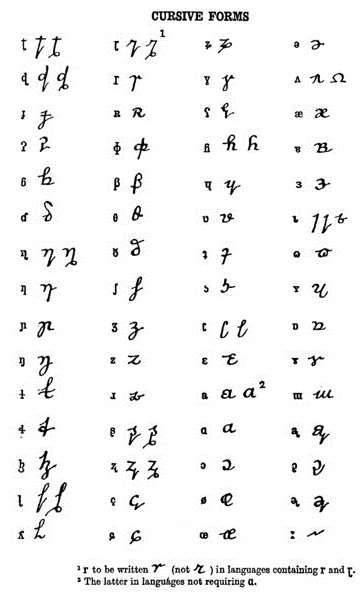 CURSIVE FORMS
ʈ ʈ ʈ ɽ ɽ ɽ¹ ʑ ʑ ə ə
ɖ ɖ ɖ ɾ ɾ ɣ ɣ ʌ ʌ Ω
ɟ ɟ ʀ ʀ ʕ ʕ æ æ
ʔ ʔ ɸ ɸ ɦ ɦ ɐ ɐ
ɓ ɓ β β ɥ ɥ ɜ ɜ
ɗ ɗ θ θ ʋ ʋ
ɳ ɳ ɳ ð ð ʇ ʇ ɷ ɷ
ʃ ʃ ʏ ʏ
ɲ ɲ ʒ ʒ ʗ ʗ ʗ
ŋ ŋ z z ɛ ɛ ɤ ɤ
ɫ ɫ ɹ ɹ a a ɑ² ɯ ɯ
ʂ ʂ ʂ ɑ ɑ ą ą
ɮ ɮ ʐ ʐ ʐ ɔ ɔ
ɭ ɭ ɭ ç ç ø ø ə̨ ə̨
ʎ ʎ ɕ ɕ œ œ ː ~
¹ r to be written r (not r) in languages containing r and ɽ.
² The latter in languages not requiring ɑ.